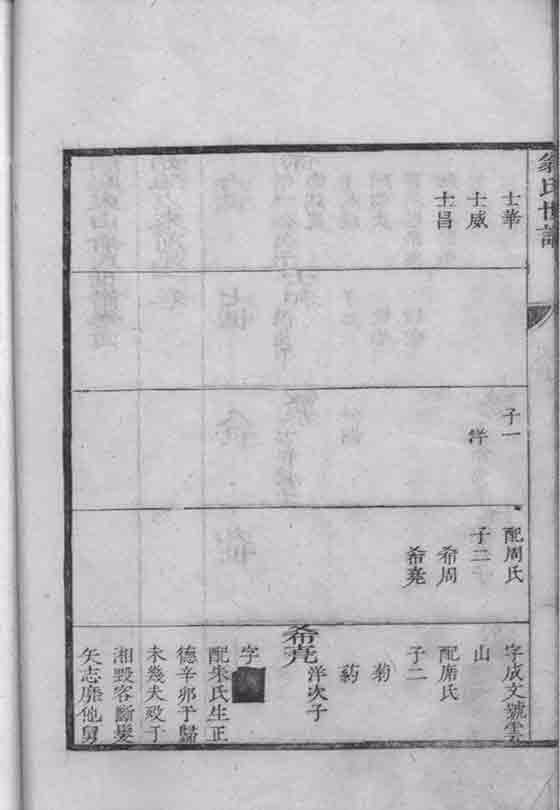 翁氏世譜
士華
士威
士昌
子一
洋
配周氏
子二
希周
希堯
字成文號雲
山
配席氏
子二
菊
葯
希堯
洋次子
字
配朱氏生正
德辛卯于歸
未幾夫歿于
湘毀容斷髮
矢志靡他舅